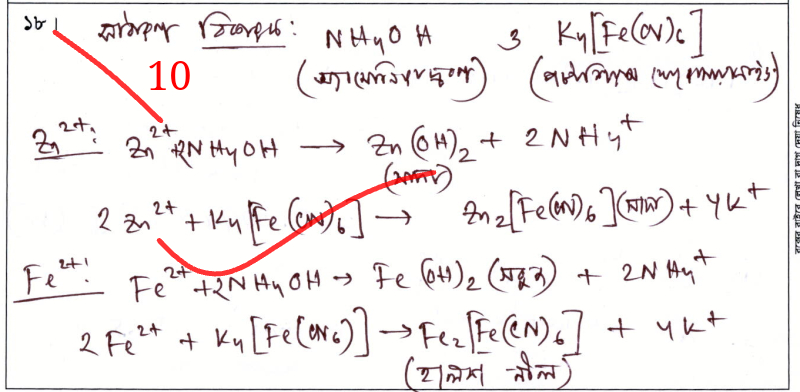 ১৮। সঠিকৰূপ বিকারক: NH4OH ও K4[Fe(CN)6]
10
(অ্যামোনিয়াম) (পটাসিয়াম)
Zn2+: Zn2+ + 2NH4OH → Zn(OH)2 + 2NH4+
(সাদা)
2 Zn2+ + K4[Fe(CN)6] → Zn2[Fe(CN)6](সাদা) + 4K+
Fe2+: Fe2+ + 2NH4OH → Fe(OH)2 (সবুজ) + 2NH4+
2Fe2+ + K4[Fe(CN6)] → Fe2[Fe(CN)6] + 4K+
(হালকা নীল)